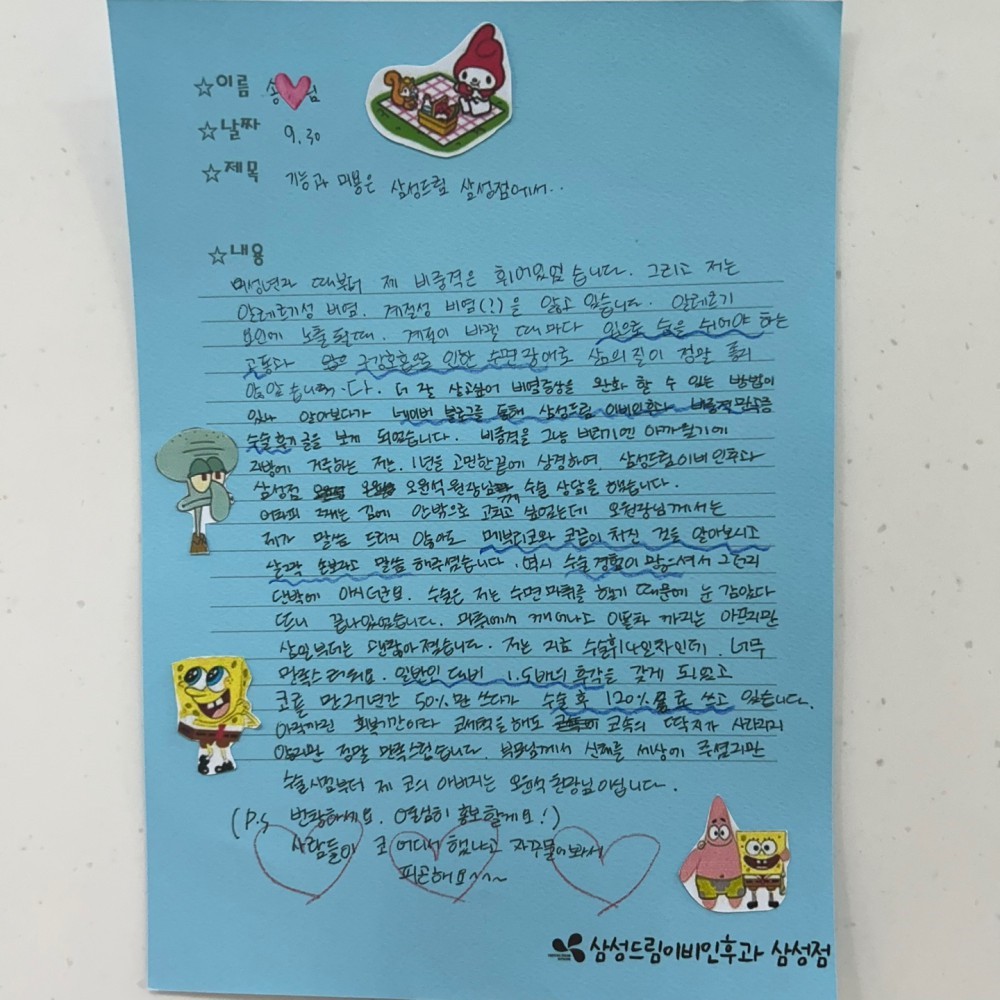 ☆이름 송♥님
☆날짜 9.30
☆제목 기능과 미용은 삼성드림 삼성점에서..
☆내용
미성년자 때부터 제 비중격은 휘어있었습니다. 그리고 저는
알레르기성 비염, 계절성 비염(?)을 앓고 있습니다. 알레르기
요인에 노출될때, 계절이 바뀔 때마다 입으로 숨을 쉬어야 하는
고통과 구강호흡으로 인한 수면장애로 삶의 질이 정말 좋지
않았습니다. 더 잘 살고싶어 비염증상을 완화 할 수 있는 방법이
있나 알아보다가 네이버 블로그를 통해 삼성드림 이비인후과 비중격만곡증
수술후기 글을 보게 되었습니다. 비중격을 그냥 버리기엔 아까웠기에
지방에 거주하는 저는, 1년을 고민한끝에 상경하여 삼성드림이비인후과
삼성점 오원석원장님께 수술 상담을 했습니다.
어차피 째는 김에 안밖으로 고치고 싶었는데 오원장님께서는
제가 말씀 드리지 않아도 메부리코와 코끝이 처진 것을 알아보시고
살짝 손보라고 말씀해주셨습니다. 역시 수술경험이 많으셔서 그런지
단박에 아시더라고요. 수술은 저는 수면마취를 했기 때문에 눈 감았다
뜨니 끝나있었습니다. 마취에서 깨어나고 이틀차 까지는 아프지만
삼일부터는 괜찮아졌습니다. 저는 지금 수술후14일차인데, 너무
만족스러워요. 일반인 대비 1.5배의 후각을 갖게 되었고
코를 만27년간 50%만 쓰다가 수술 후 120%으로 쓰고 있습니다.
아직까진 회복기간이라 코세척을 해도 코속의 딱지가 사라지지
않지만 정말 만족스럽습니다. 부모님께서 신체를 세상에 주셨지만
수술시점부터 제 코의 아버지는 오원석원장님이십니다.
(P.S 번창하세요. 열심히 홍보할게요!)
사람들이 코 어디서 했냐고 자꾸물어봐서
피곤해요~~
삼성드림이비인후과 삼성점